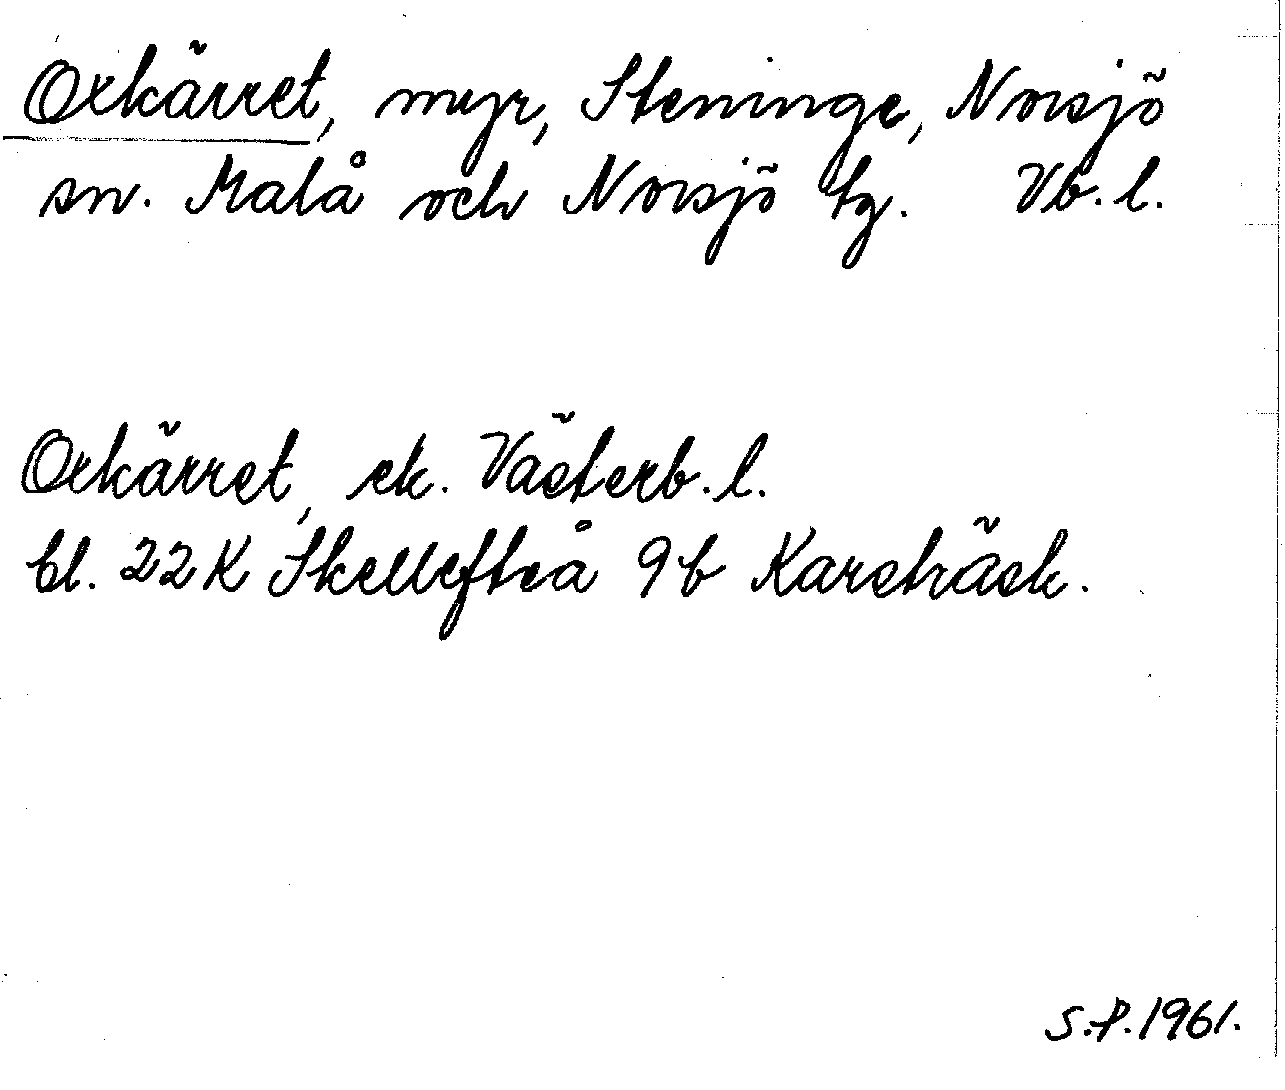 Oxkärret, myr, Steninge, Norsjö
sn. Malå och Norsjö tg. Vb. l.
Oxkärret, ek. Västerb. l.
bl. 22 K Skellefteå 9 b Karsträsk.
S.P. 1961.